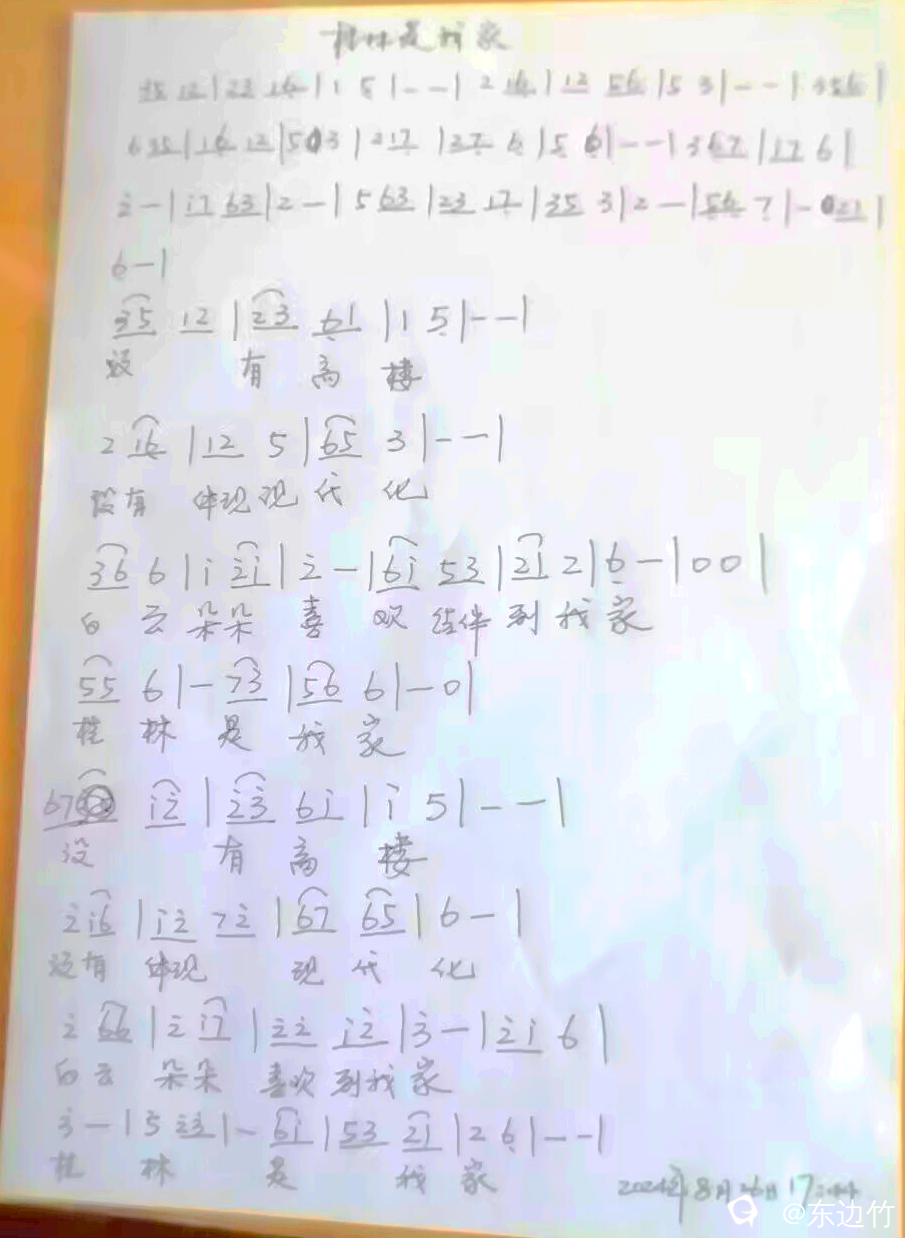 桂林是我家
35 12 | 23 16 | 1 5 | - - | 2 16 | 12 56 | 5 3 | - - | 356 |
6 35 | 16 12 | 5 03 | 217 | 27 6 | 5 6 | - - | 3 67 | 17 6 |
2̇ - | i7 63 | 2 - | 5 63 | 23 17 | 35 3 | 2 - | 56 7 | - 021 |
6 - |
35 12 | 23 61 | 1 5 | - - |
没 有 高 楼
2 16 | 12 5 | 65 3 | - - |
没有 体现现 代 化
36 6 | i 2̇i | 2̇ - | 6i 53 | 21 2 | 6 - | 0 0 |
白 云 朵朵 喜 欢 结伴 到 我 家
55 6 | - 73 | 56 6 | - 0 |
桂 林 是 我 家
67 i2̇ | 2̇3̇ 6i | i 5 | - - |
没 有 高 楼
2̇ i6 | i2̇ 72̇ | 67 65 | 6 - |
没有 体现 现 代 化
2̇ 66 | 2̇ i7 | 2̇2̇ i2̇ | 3̇ - | 2̇i 6 |
白云 朵朵 喜欢 到我 家
3̇ - | 5 2̇3̇ | - 6i | 53 21 | 2 6 | - - |
桂 林 是 我 家
2024年8月26日17:44
@东边竹